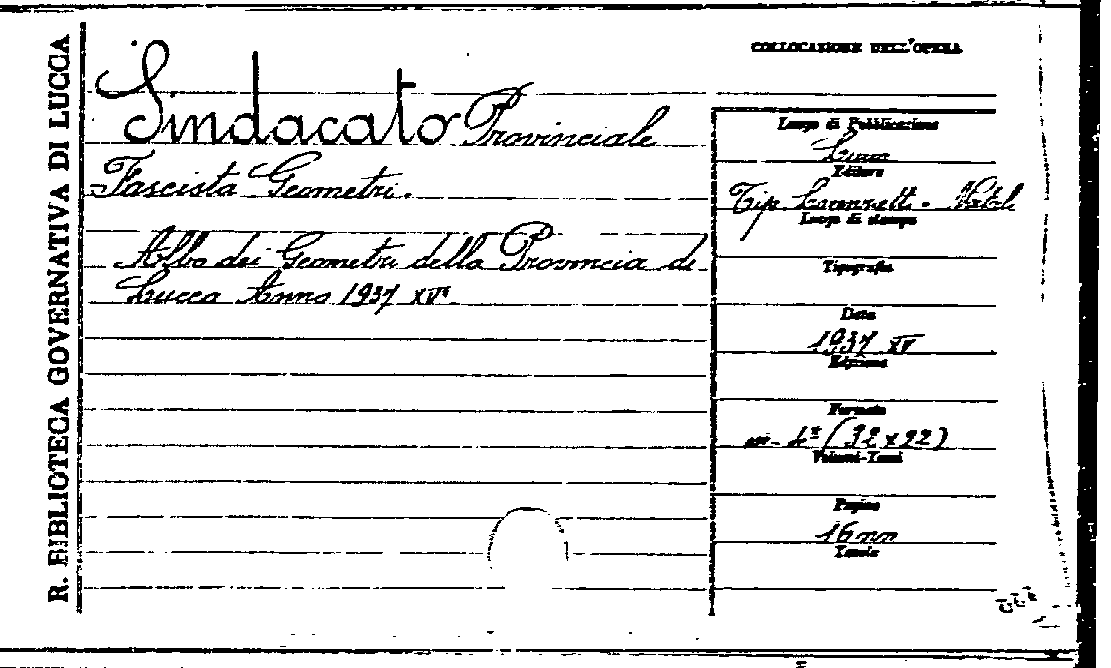 R. BIBLIOTECA GOVERNATIVA DI LUCCA
COLLOCAZIONE DELL'OPERA
Sindacato Provinciale
Fascista Geometri.
Albo dei Geometri della Provincia di
Lucca Anno 1937 XV°
Luogo di Pubblicazione
Lucca
Editore
Tip. Lorenzetti - Natali
Luogo di stampa
Tipografia
Data
1937 XV
Edizione
Formato
in-4° (32x22)
Volumi-Tomi
Pagine
16 nn
Tavole